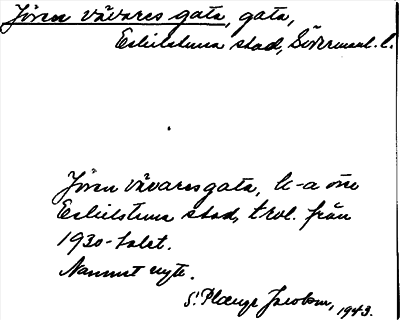 Jören vävares gata, gata,
Eskilstuna stad, Söderманl. l.
Jören vävares gata, k-a öre
Eskilstuna stad, trol. från
1930-talet.
Namnet nytt.
S. Plænge Jacobson, 1943.